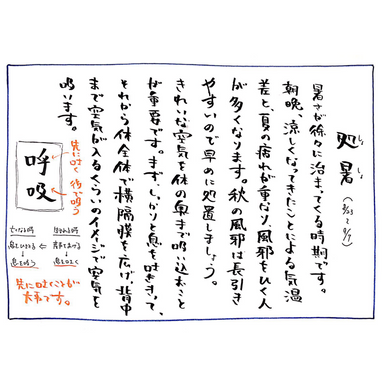 処暑(8/23〜9/7)
しょ しょ
暑さが徐々に治まってくる時期です。
朝晩、涼しくなってきたことによる気温
差と、夏の疲れが重なり風邪をひく人
が多くなります。秋の風邪は長引き
やすいので早めに処置しましょう。
きれいな空気を体の奥まで吸い込むこと
が重要です。まず、しっかりと息を吐ききって、
それから体全体で横隔膜を広げ、背中
まで空気が入るくらいのイメージで空気を
吸います。
先に吐く 後で吸う
呼吸
息を吐く
息を吸う
先に吐くことが
大事です。